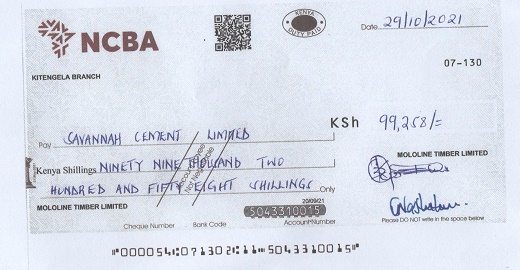 NCBA
KENYA
DUTY PAID
Date 29/10/2021
KITENGELA BRANCH
07-130
Pay SAVANNAH CEMENT LIMITED
KSh 99,258/=
Account Payee
Not Negotiable
Kenya Shillings NINETY NINE THOUSAND TWO
HUNDRED AND FIFTY EIGHT SHILLINGS Only
MOLOLINE TIMBER LIMITED
MOLOLINE TIMBER LIMITED
20/09/21
5043310015
Cheque Number Bank Code Account Number
Please DO NOT write in the space below
"000054⑆071302⑆ 5043310015"